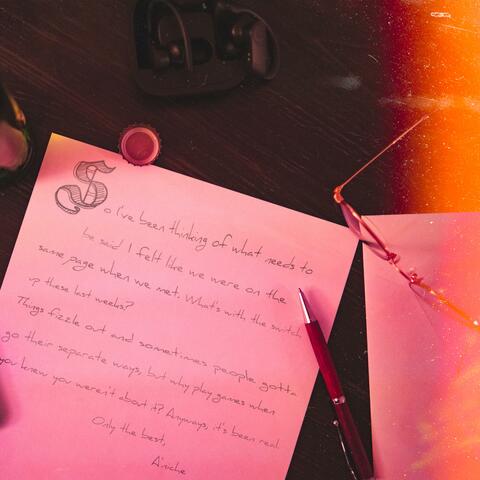 So I've been thinking of what needs to
be said I felt like we were on the
same page when we met. What's with the switch
up these last weeks?
Things fizzle out and sometimes people gotta
go their separate ways, but why play games when
you knew you weren't about it? Anyways, it's been real.
Only the best,
A'niche